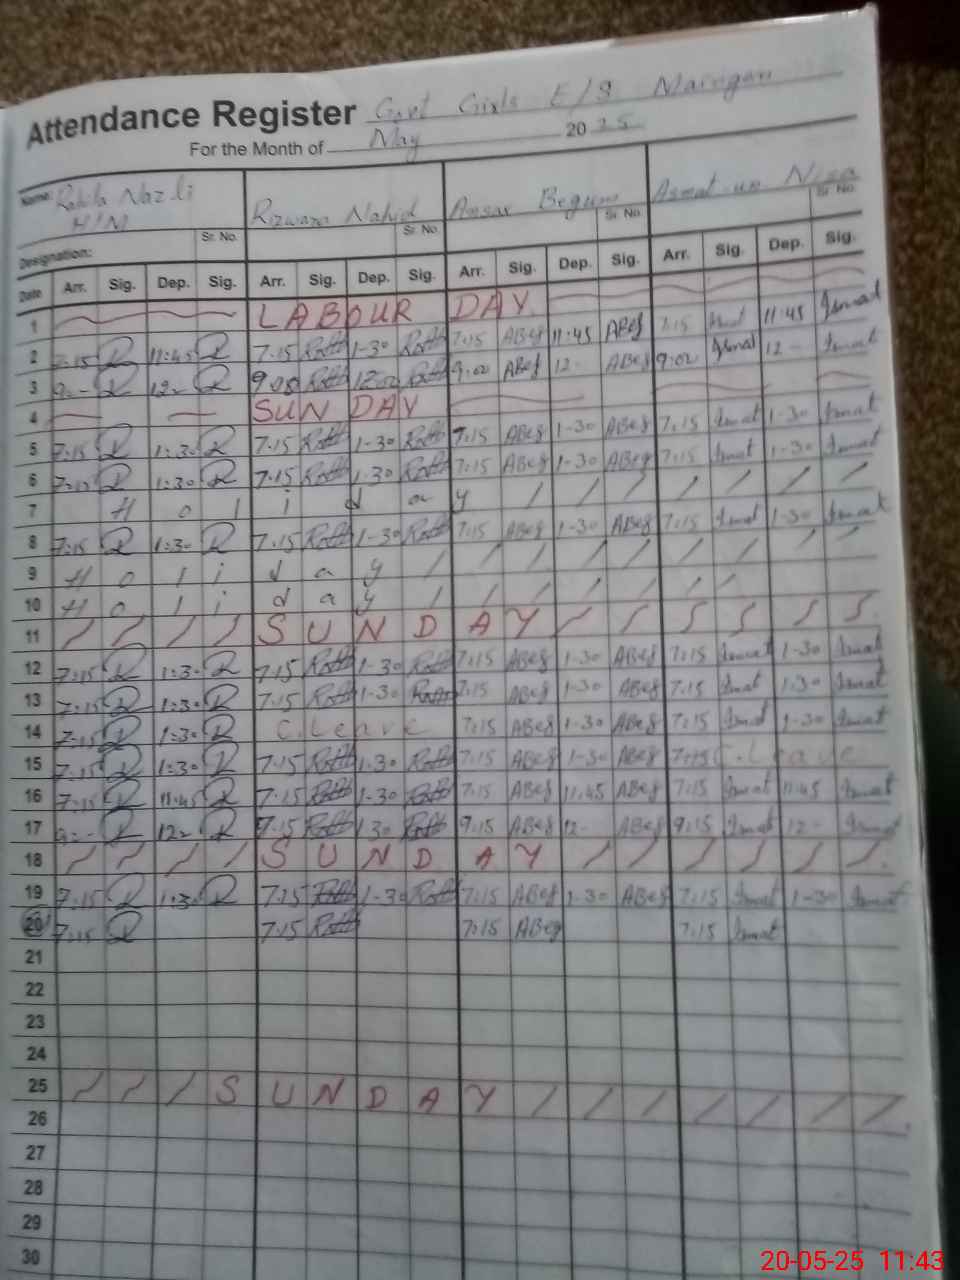 Attendance Register Govt Girls E/S
For the Month of May 2025
Name: Rahila Nazli Rizwana Nahid Ansar Begum Asmat un Nisa
H/M Sr. No. Sr. No. Sr. No. Sr. No.
Designation:
Date Arr. Sig. Dep. Sig. Arr. Sig. Dep. Sig. Arr. Sig. Dep. Sig. Arr. Sig. Dep. Sig.
1 LABOUR DAY
2 7-15 11:45 7.15 1-30 7:15 ABeg 11:45 ABeg 7:15 11:45 Asmat
3 9-- 12- 9.05 12-00 9:00 ABeg 12- ABeg 9:00 Asmat 12- Asmat
4 SUN DAY
5 7:15 1:30 7.15 1-30 7:15 ABeg 1-30 ABeg 7:15 Asmat 1-30 Asmat
6 7:15 1:30 7.15 1.30 7:15 ABeg 1-30 ABeg 7:15 Asmat 1-30 Asmat
7 H o l i d a y / / / / / / /
8 7:15 1:30 7.15 1-30 7:15 ABeg 1-30 ABeg 7:15 Asmat 1-30 Asmat
9 H o l i d a y / / / / / / / / /
10 H o l i d a y / / / / / / /
11 / / / / S U N D A Y / / / / / /
12 7:15 1:30 7.15 1-30 7:15 ABeg 1-30 ABeg 7:15 Asmat 1-30 Asmat
13 7:15 1:30 7.15 1-30 7:15 ABeg 1-30 ABeg 7:15 Asmat 1.30 Asmat
14 7:15 1:30 C. Leave 7:15 ABeg 1-30 ABeg 7:15 Asmat 1-30 Asmat
15 7:15 1:30 7.15 1.30 7:15 ABeg 1-30 ABeg 7:15 C. Leave
16 7:15 11:45 7.15 1-30 7:15 ABeg 11.45 ABeg 7:15 Asmat 11:45 Asmat
17 9:-- 12- 9.15 1.30 9:15 ABeg 12- ABeg 9:15 Asmat 12- Asmat
18 / / / / S U N D A Y / / / / / /
19 7:15 1:30 7.15 1-30 7:15 ABeg 1-30 ABeg 7:15 Asmat 1-30 Asmat
20 7:15 7.15 7:15 ABeg 7:15 Asmat
21
22
23
24
25 / / / S U N D A Y / / / / / / / /
26
27
28
29
30
20-05-25 11:43